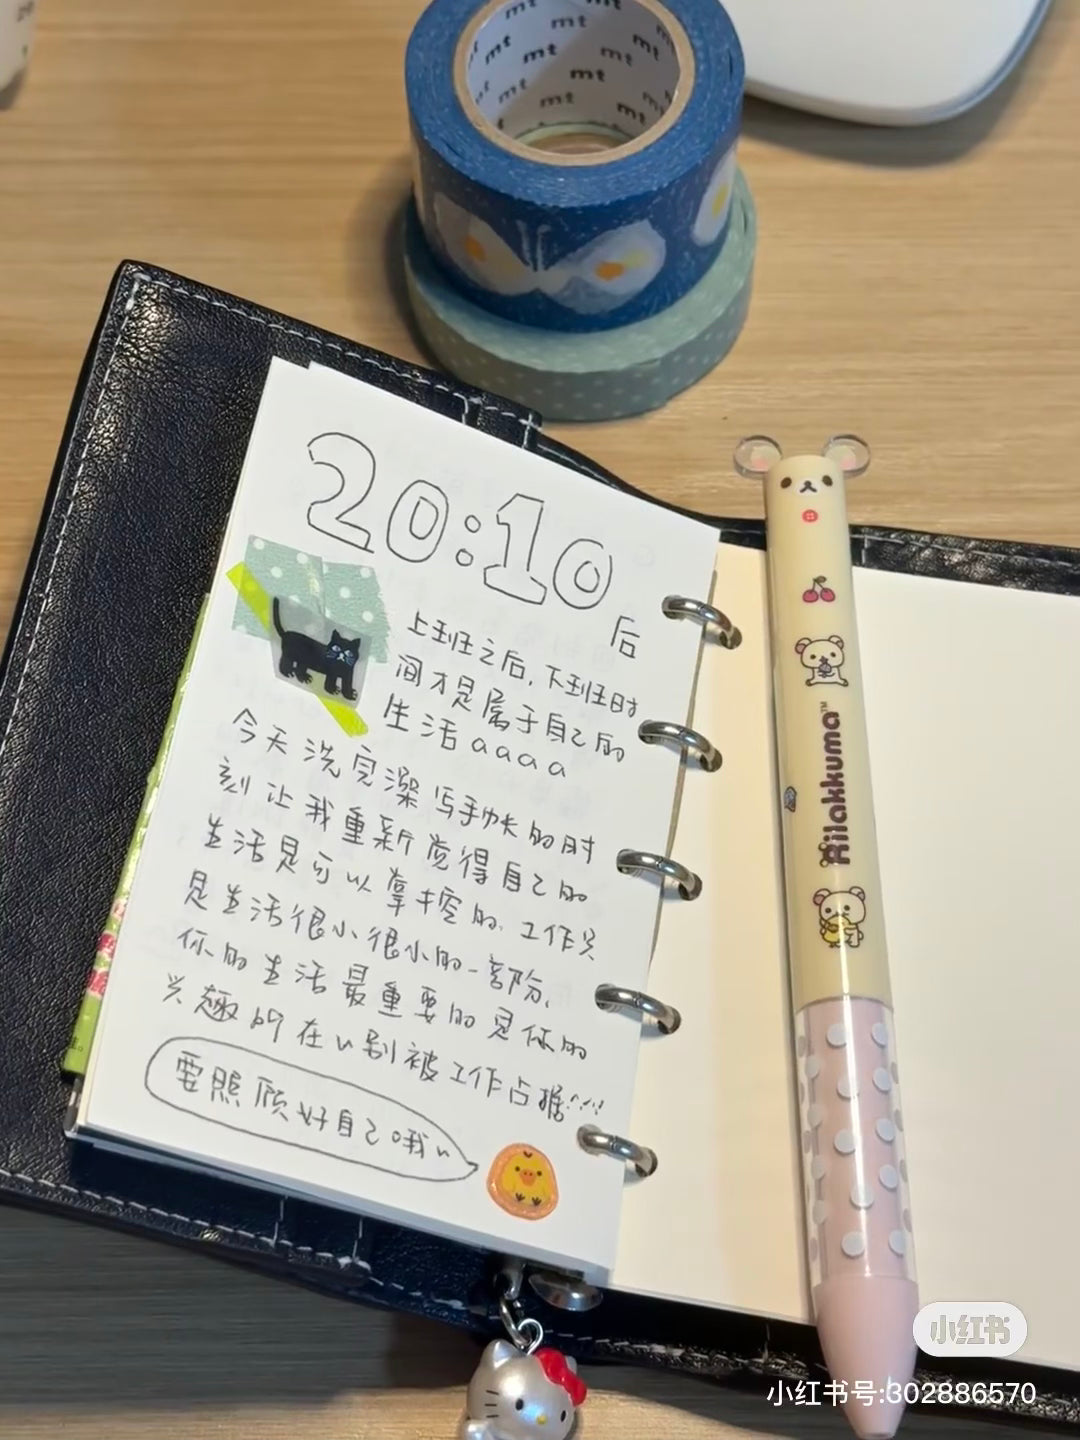 mt mt mt
mt mt mt
mt mt mt
20:10
后
上班之后,下班时
间才是属于自己的
生活aaaa
今天洗完澡写手帐的时
刻让我重新觉得自己的
生活是可以掌控的.工作只
是生活很小很小的一部份,
你的生活最重要的是你的
兴趣所在~别被工作占据!!!
要照顾好自己哦~
Rilakkuma™
小红书
小红书号:302886570